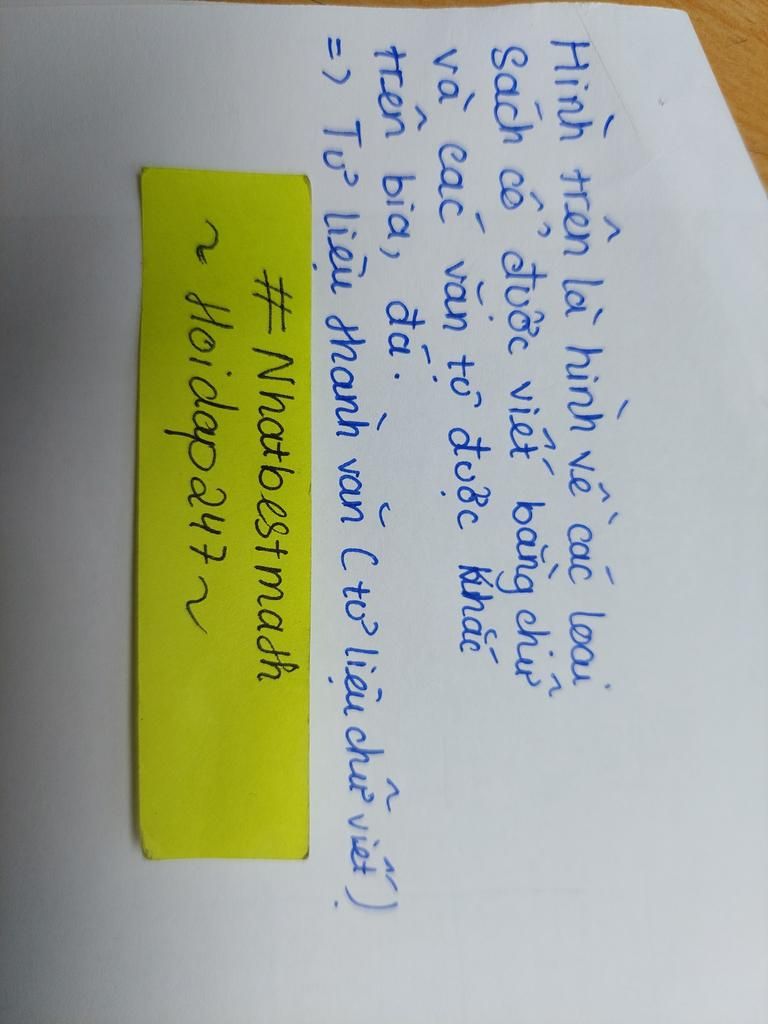 Hình trên là hình vẽ các loại
sách cổ được viết bằng chữ
và các văn tự được khắc
trên bia, đá.
=> Tư liệu thành văn (tư liệu chữ viết)
#Nhatbestmath
~ Hoidap247 ~